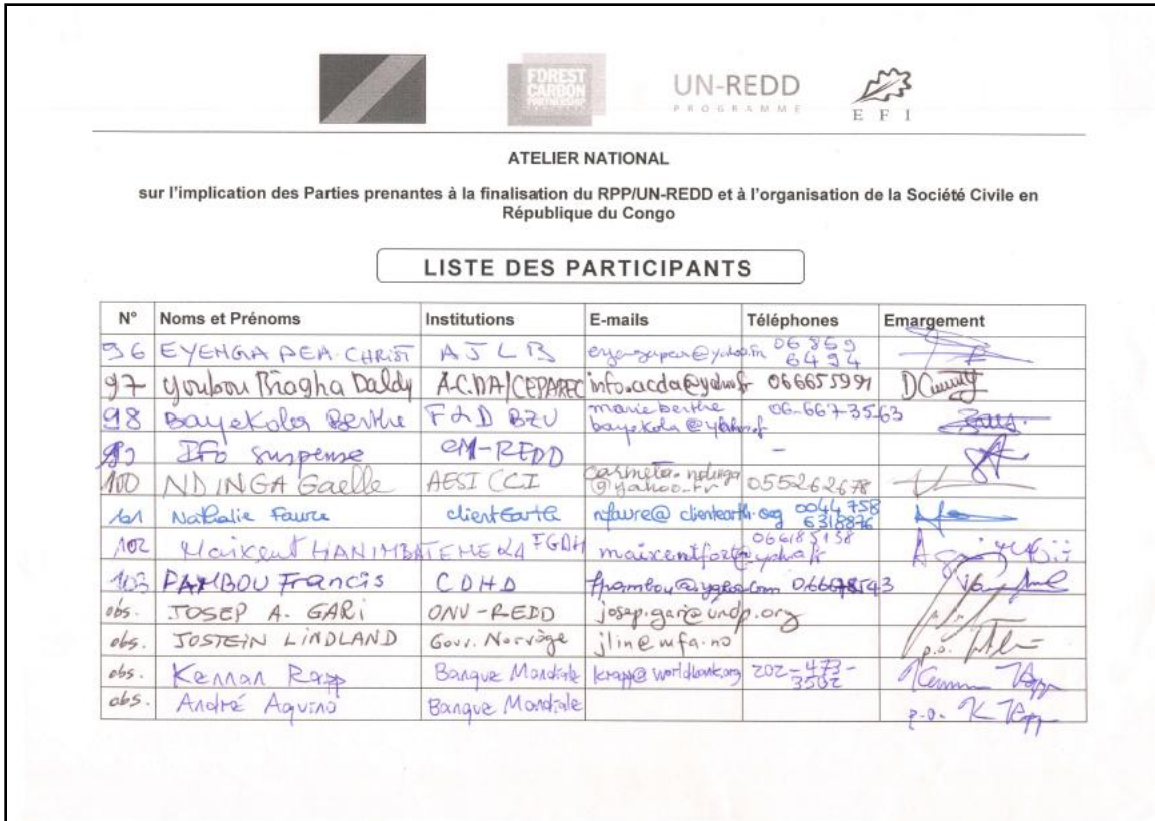 FOREST CARBON PARTNERSHIP
UN-REDD
PROGRAMME
EFI
ATELIER NATIONAL
sur l'implication des Parties prenantes à la finalisation du RPP/UN-REDD et à l'organisation de la Société Civile en
République du Congo
LISTE DES PARTICIPANTS
N° Noms et Prénoms Institutions E-mails Téléphones Emargement
96 EYENGA PEA CHRIST AJLB 06 859 6494
97 Youbou Biagha Daldy A.C.D.A/CEPAREC info.acda@yahoo.fr 066655991
98 Bayekola Berthe F&D BZV marieberthe 06-667-35-63
Ifo Suspense CM-REDD -
100 NDINGA Gaelle AESI CCI carmela.ndinga@yahoo.fr 055262678
101 Nathalie Faure clientEarth nfaure@clientearth.org 0044 758 6318876
102 Maixent HANIMBAT EMEKA FGDH
103 PAMBOU Francis CDHD
obs. JOSEP A. GARI ONU-REDD josep.gari@undp.org
obs. JOSTEIN LINDLAND Gouv. Norvège jlin@mfa.no p.o.
obs. Kennan Rapp Banque Mondiale krapp@worldbank.org 202-473-3502
obs. André Aquino Banque Mondiale p.o. K Rapp